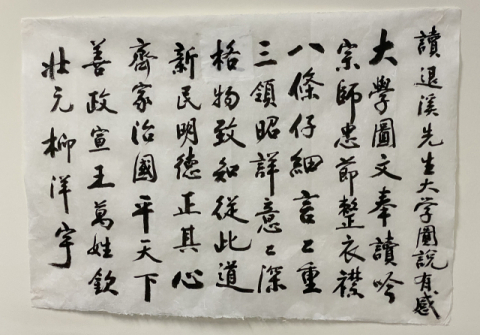 讀退溪先生大学圖說有感
大學圖文奉讀吟
宗師忠節整衣襟
八條仔細言言重
三領昭詳意意深
格物致知從此道
新民明德正其心
齊家治國平天下
善政宣王萬姓欽
壯元柳洋宇